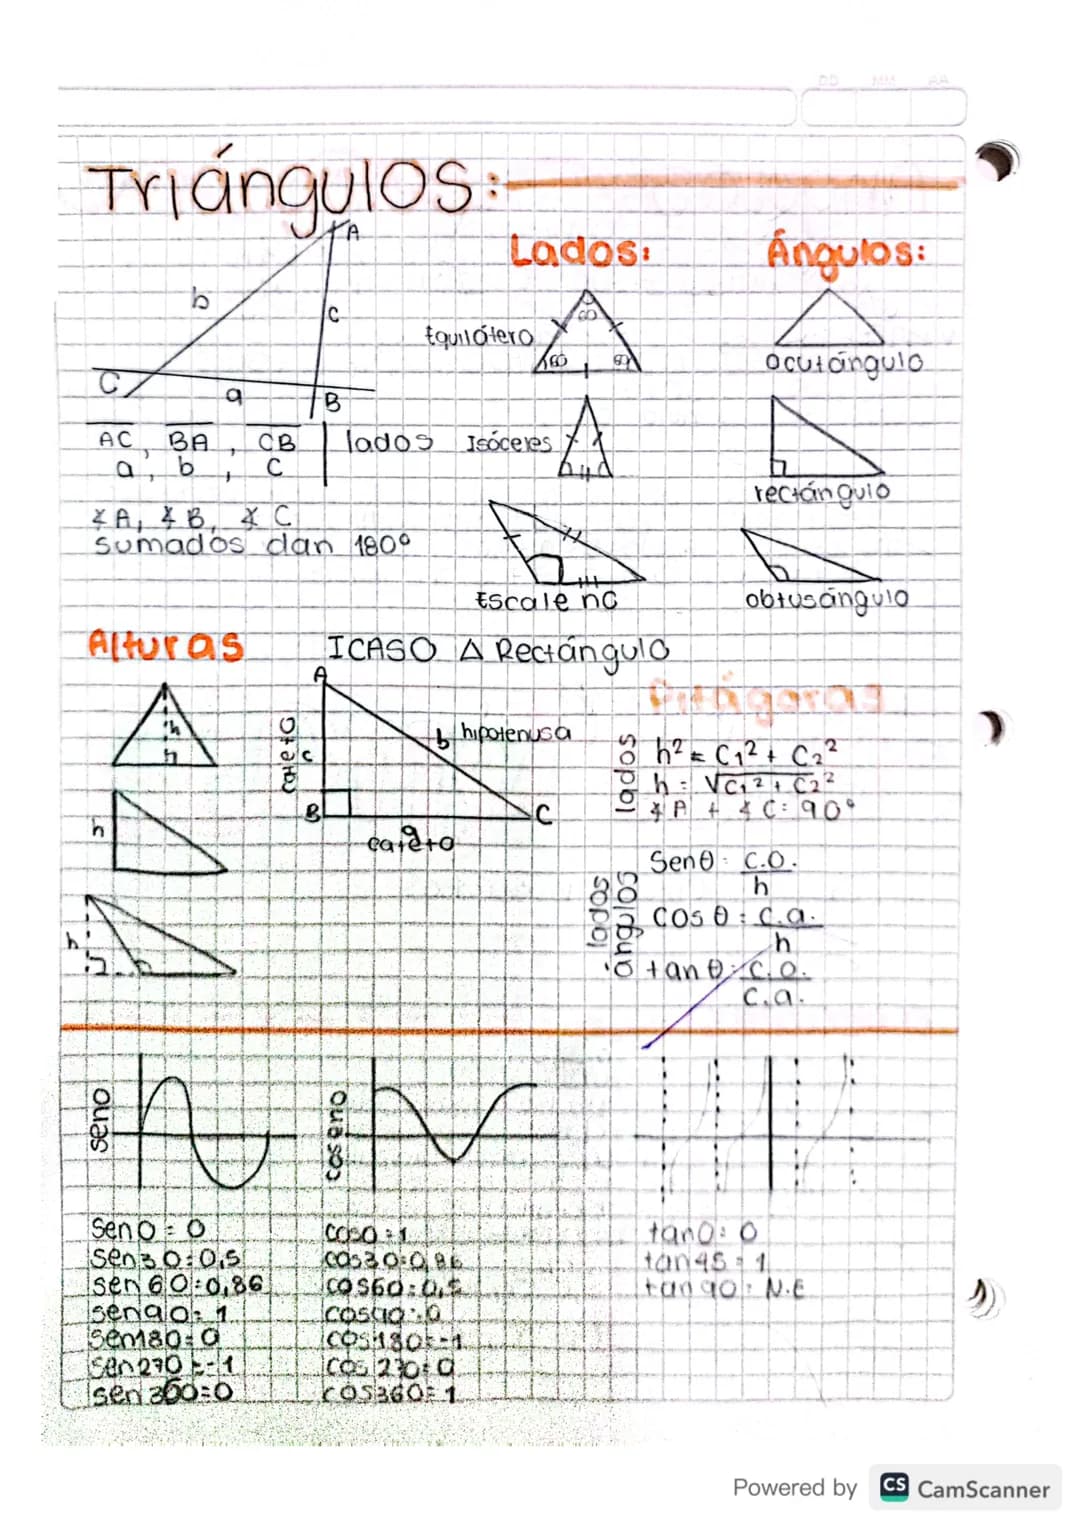 DD MM AA
Triángulos:
A
b
c
C
a
B
AC, BA, CB | lados
a, b, c
∡A, ∡B, ∡C
sumados dan 180°
Lados:
Equilátero
60
60
60
Isóceles
Escaleno
Ángulos:
acutángulo
rectángulo
obtusángulo
Alturas
h
h
h
ICASO △ Rectángulo
A
cateto
c
b hipotenusa
B
C
a
cateto
Pitágoras
lados
h² = C₁² + C₂²
h = √C₁² + C₂²
∡A + ∡C = 90°
lados
ángulos
Senθ = c.o.
h
cosθ = c.a.
h
tanθ = c.o.
c.a.
seno
sen0=0
sen30=0,5
sen60=0,86
sen90=1
sen180=0
sen270=-1
sen360=0
coseno
cos0=1
cos30=0,86
cos60=0,5
cos90=0
cos180=-1
cos270=0
cos360=1
tan0=0
tan45=1
tan90=N.E
Powered by CS CamScanner